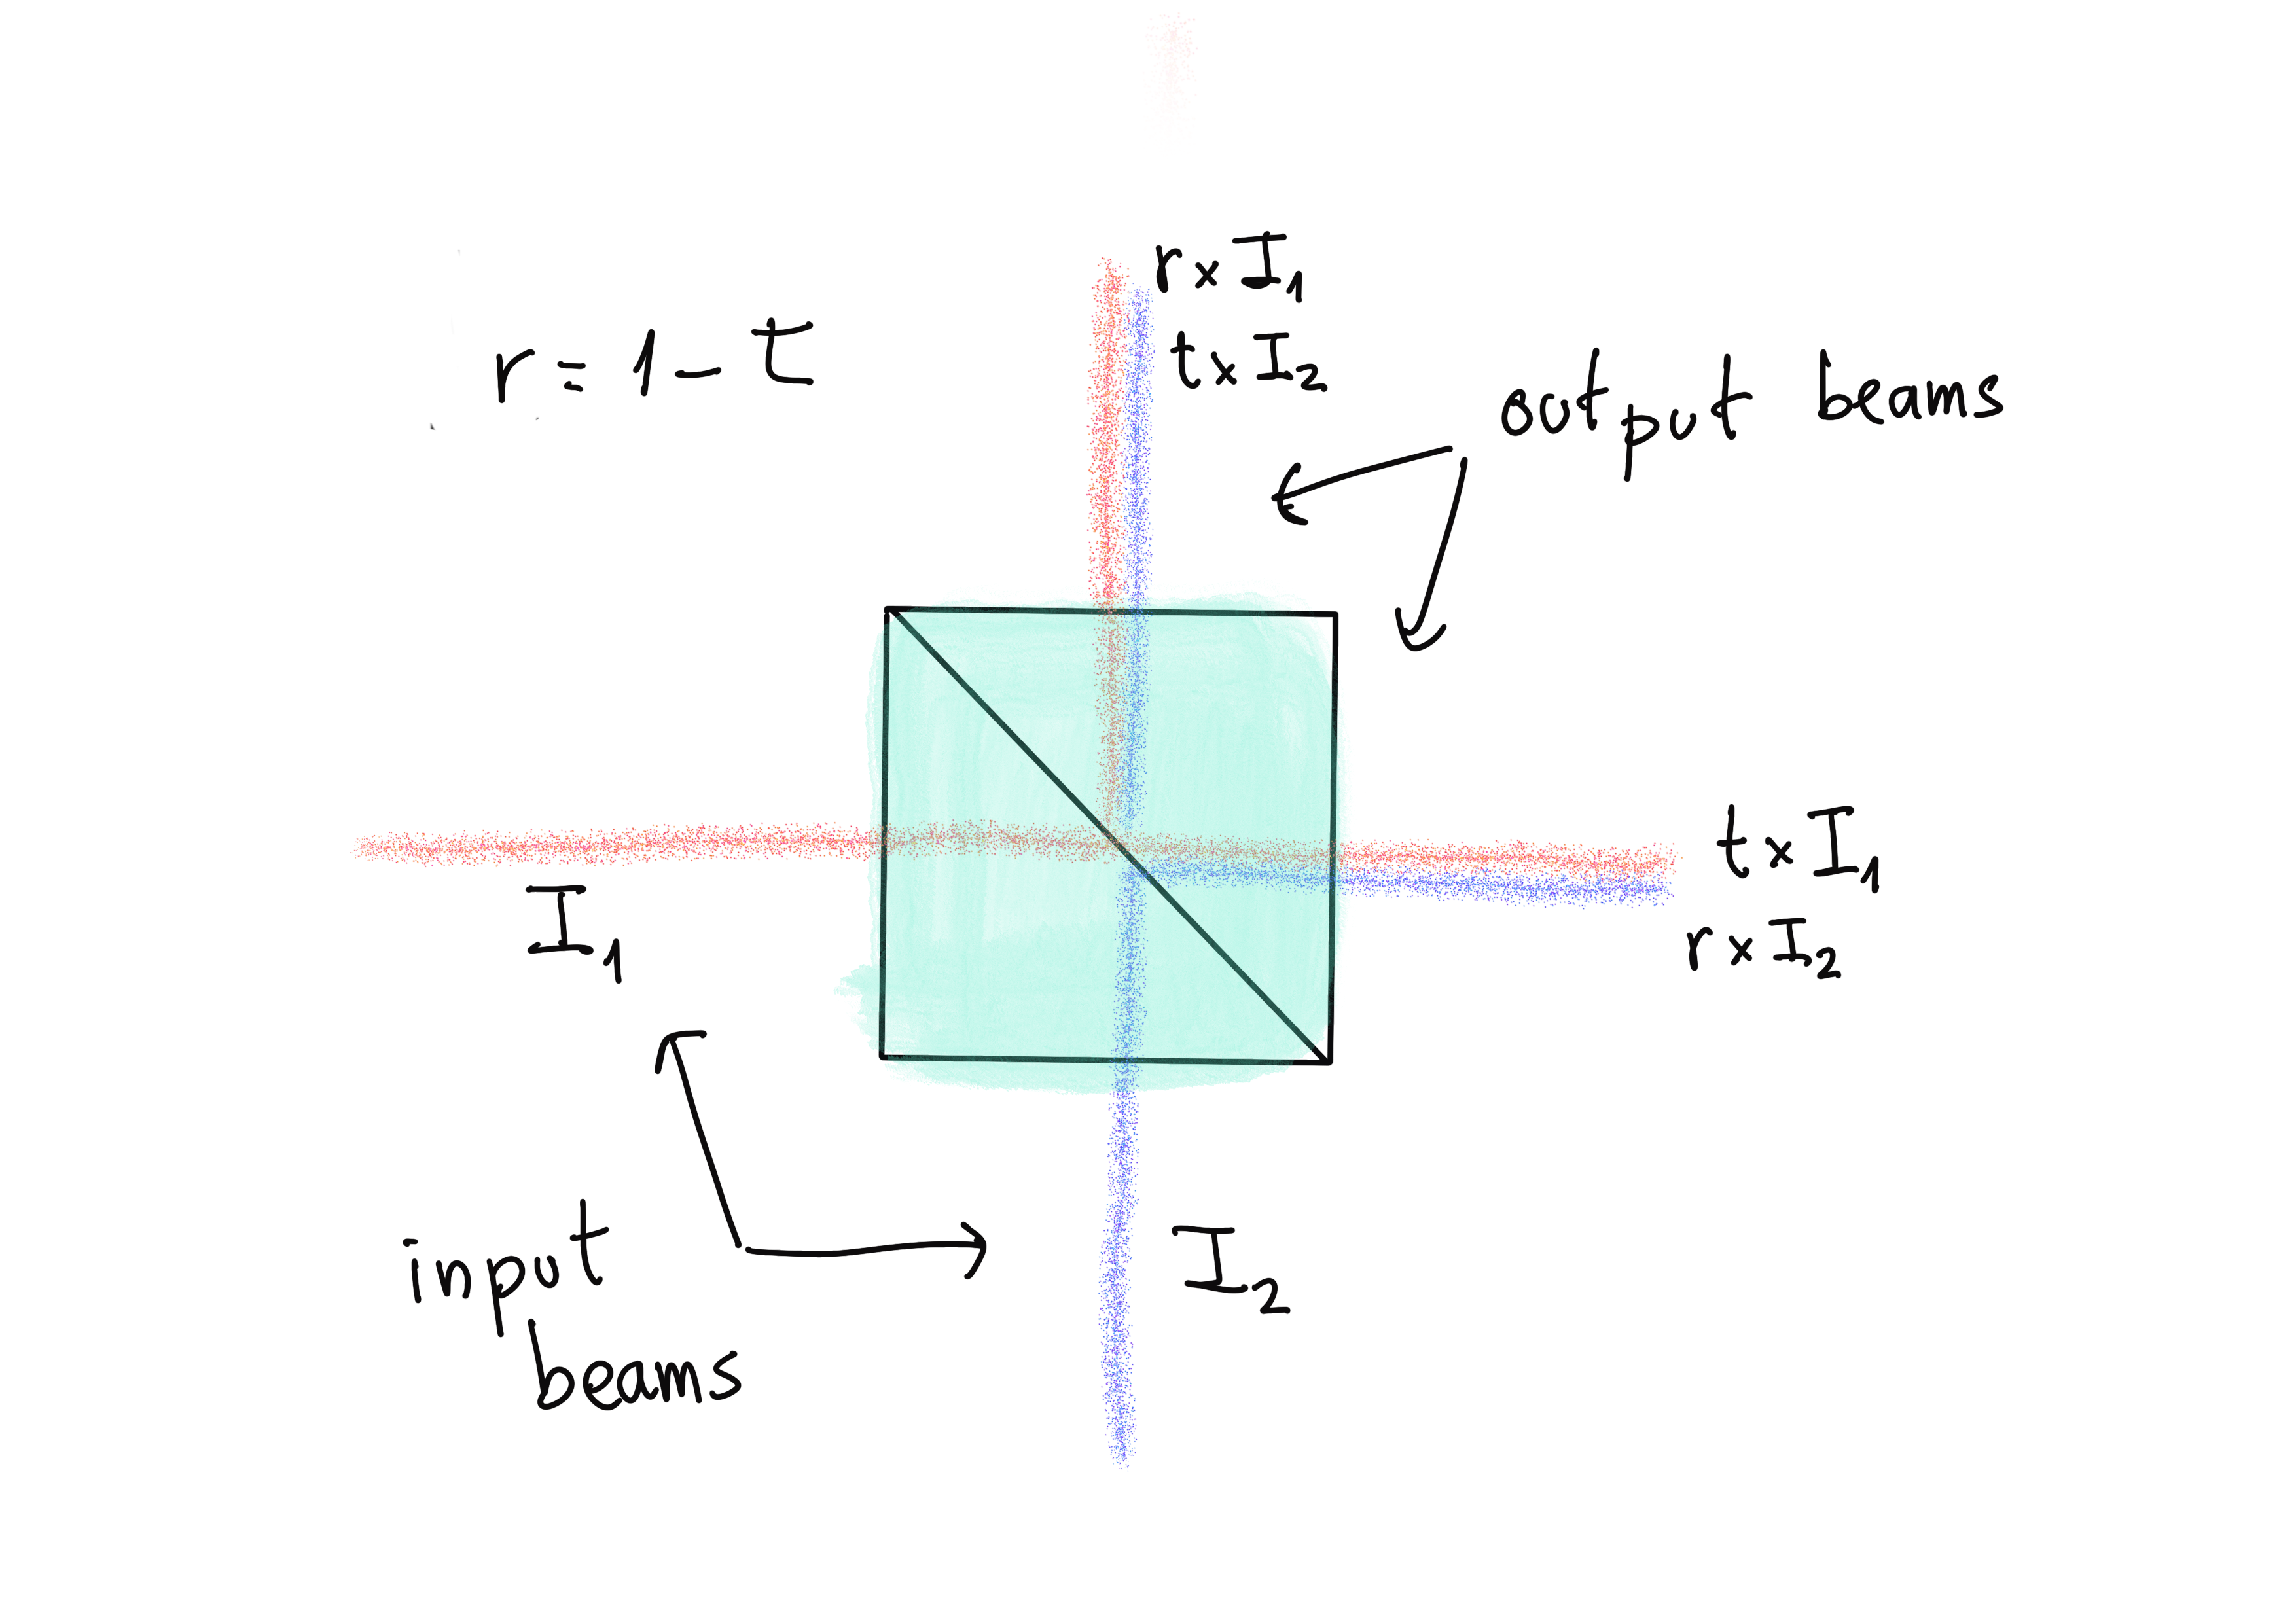 r × I₁
r = 1 - t
t × I₂
output beams
t × I₁
I₁
r × I₂
input
beams
I₂